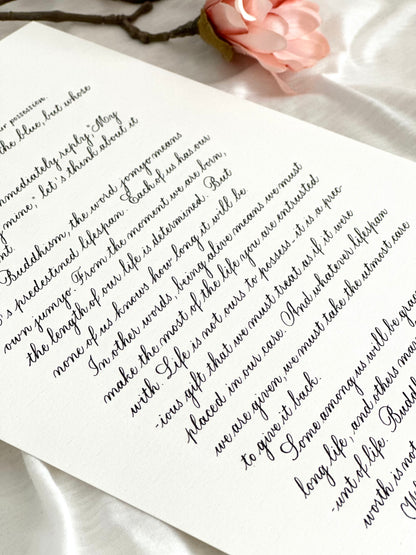 ur possession.
the blue, but whose
mmediately reply, "My
mine," let's think about it
nt.
Buddhism, the word jomyo means
's predestined lifespan. Each of us has our
own jumyo. From the moment we are born,
the length of our life is determined. But
none of us knows how long it will be
In other words, being alive means we must
make the most of the life you are entrusted
with. Life is not ours to possess. it is a prec-
-ious gift that we must treat as if it were
placed in our case. And whatever lifespan
we are given, we must take the utmost care
to give it back.
Some among us will be gra
long life, and others may
-unt of life. Budd
worth is not